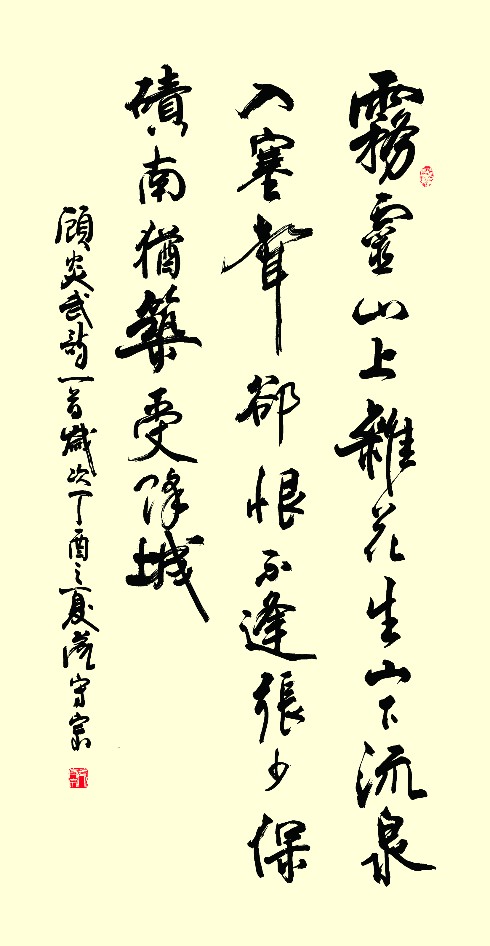 霧靈山上雜花生山下流泉
入塞聲卻恨不逢張少保
磧南猶築受降城
顧炎武詩一首歲次丁酉之夏范守宗